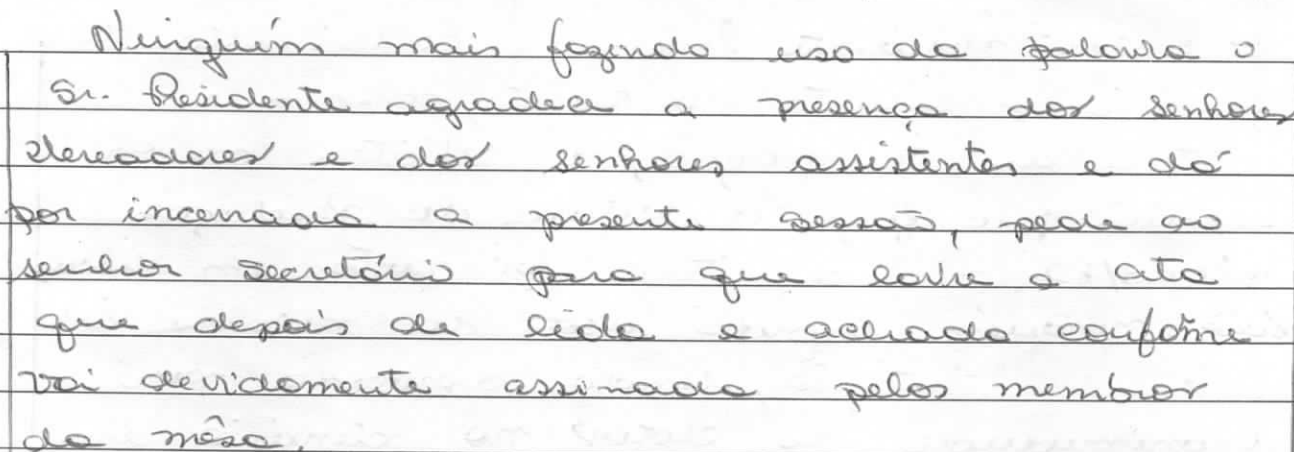 Ninguém mais fazendo uso da palavra o
Sr. Presidente agradece a presença dos senhores
vereadores e dos senhores assistentes e dá
por incerrada a presente sessão, pede ao
senhor secretário para que lavre a ata
que depois de lida e achada conforme
vai devidamente assinada pelos membros
da mêsa.